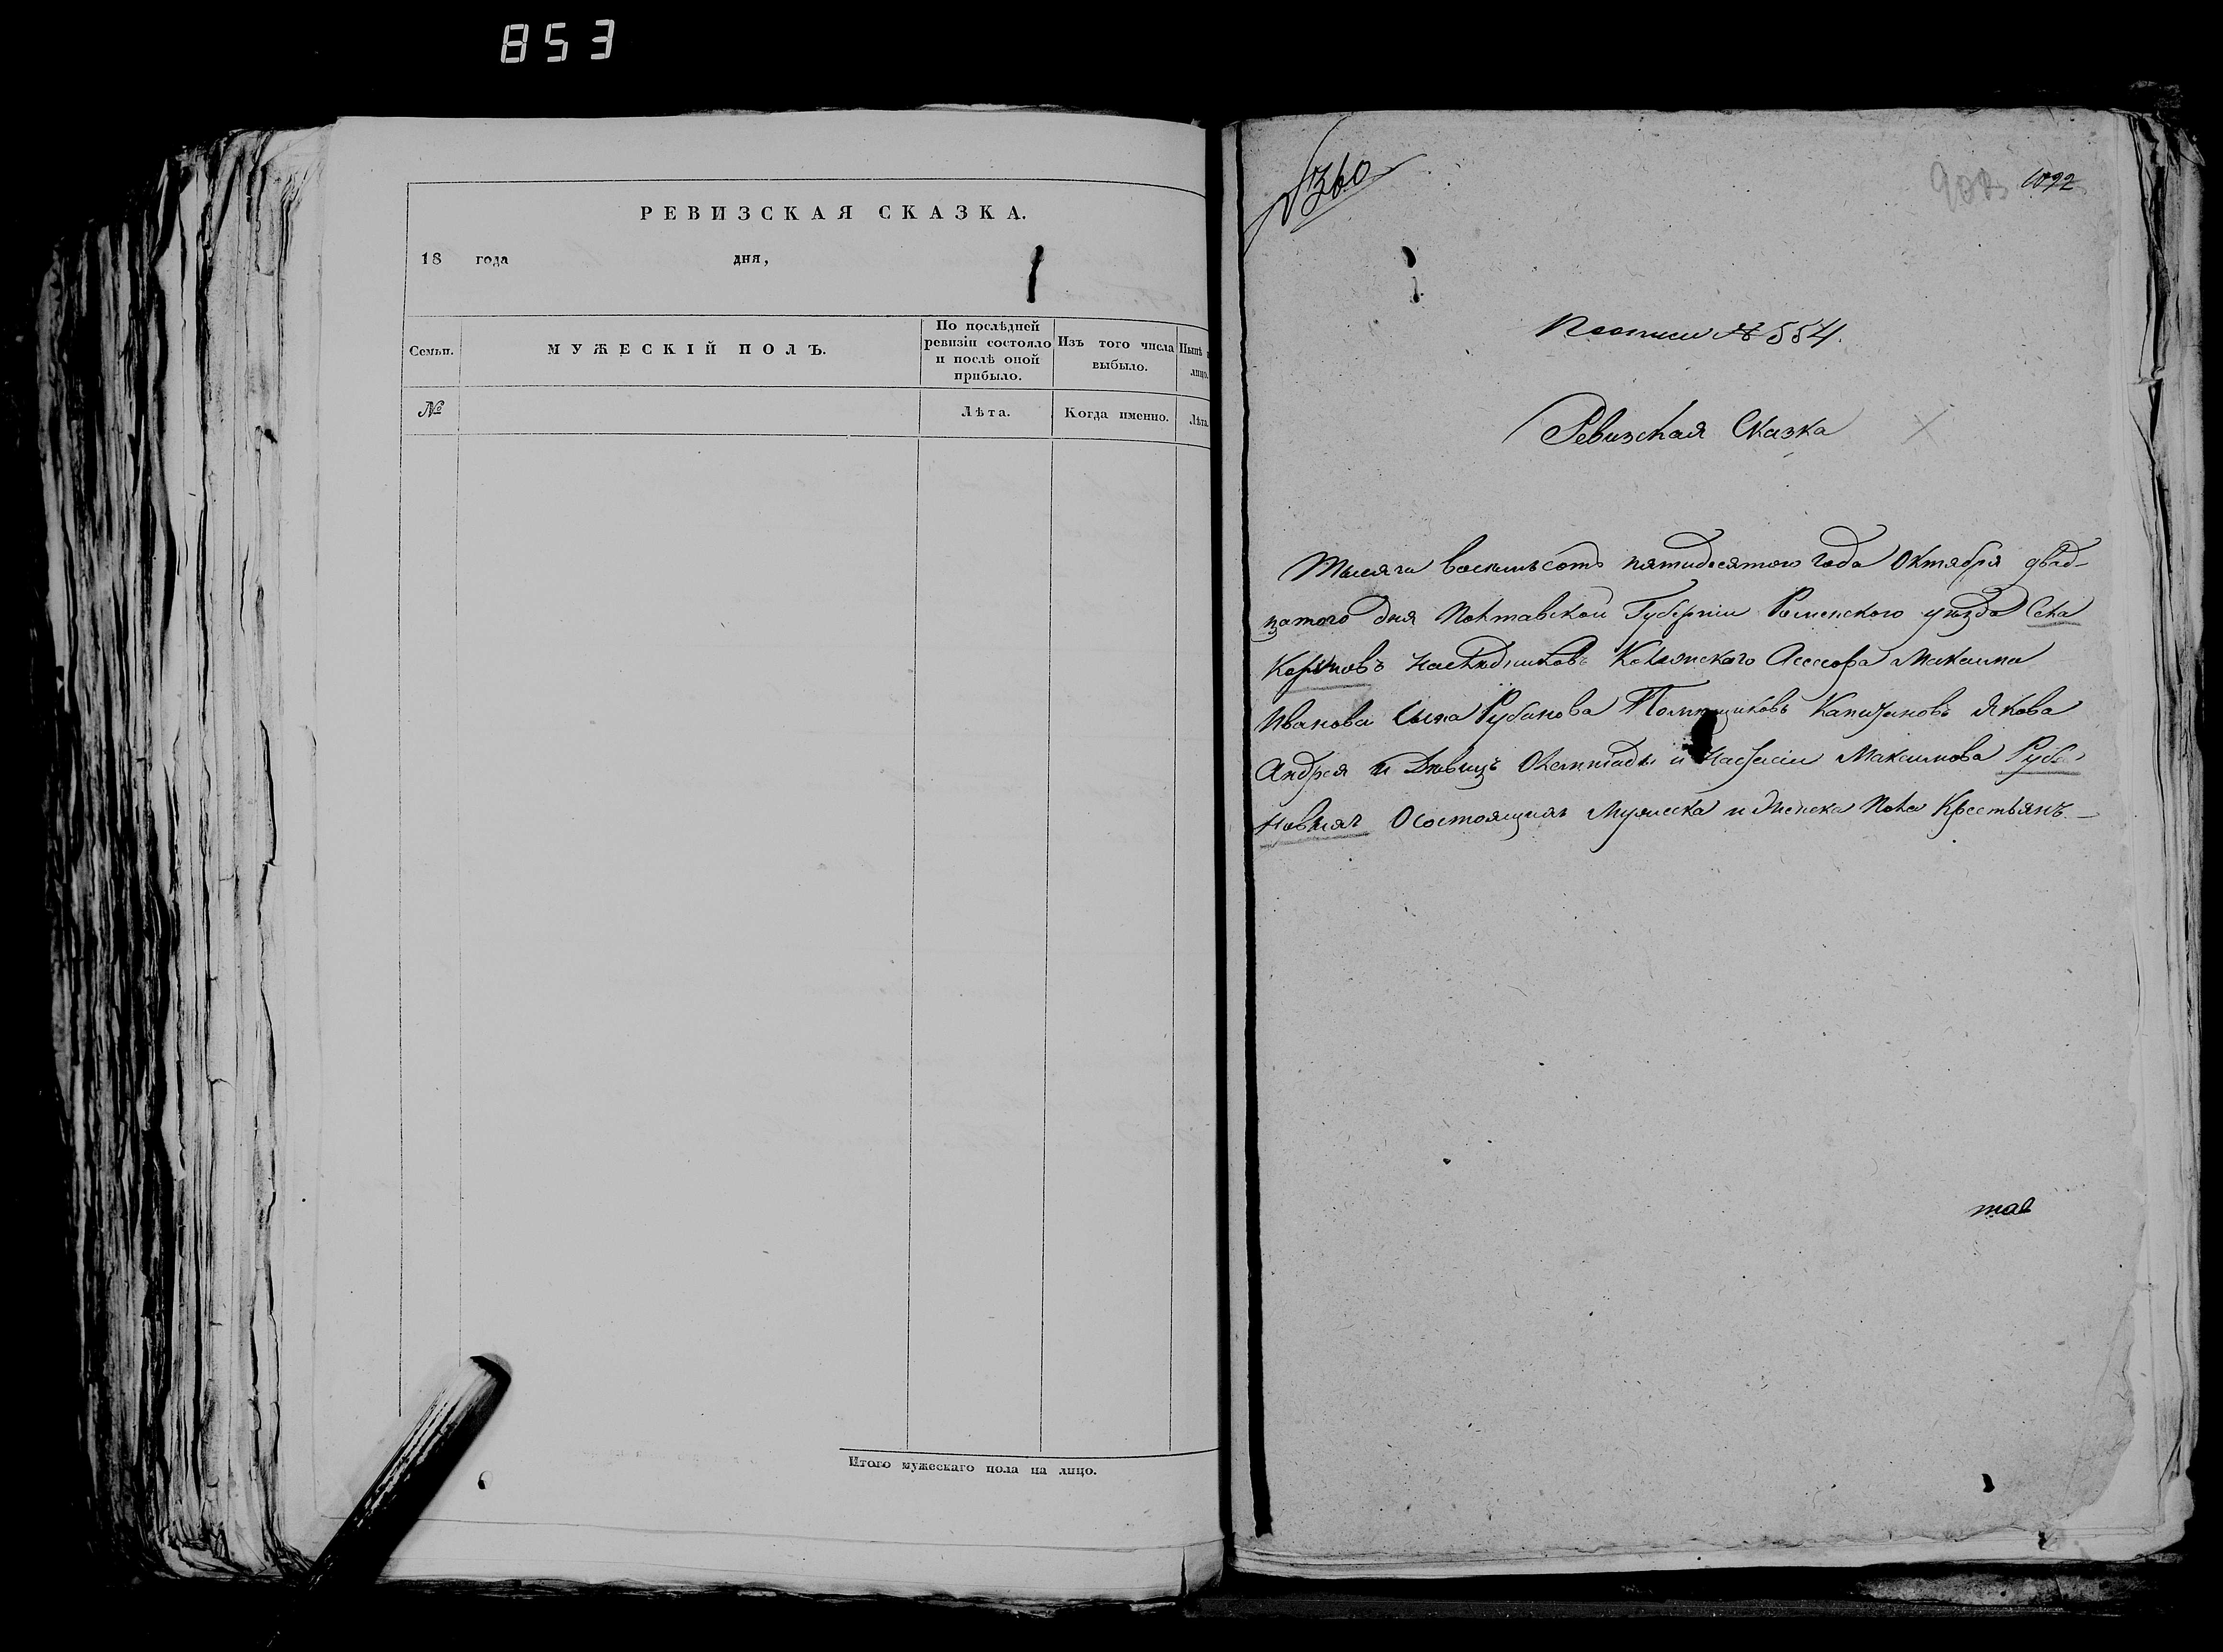 853
РЕВИЗСКАЯ СКАЗКА.
18 года дня,
Семьи.
МУЖЕСКІЙ ПОЛЪ.
По послѣдней ревизіи состояло и послѣ оной прибыло.
Изъ того числа выбыло.
Нынѣ
лицо.
№
Лѣта.
Когда именно.
Лѣта.
Итого мужескаго пола на лицо.
№ 360
1092
Поописи № 554.
Ревизская Сказка
Тысяча восемьсотъ пятидесятого года Октября двад-
цатого дня Полтавской Губерніи Роменского уѣзда Села
наслѣдниковъ Колежского Асессора Максима
Иванова Сына Рубанова Помѣщиковъ Капитановъ Якова
Андрея и Дѣвицъ Олемпіады и Настасіи Максимова Руба
новыхъ Осостоящихъ Мужеска и Женска Пола Крестьянъ.—